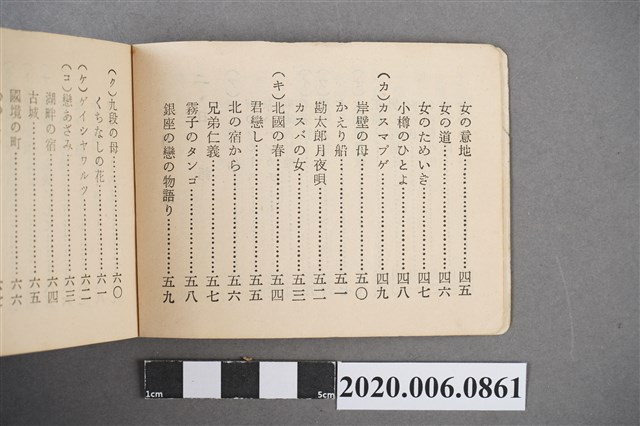 女の意地…………四五
女の道…………四六
女のためいき…………四七
小樽のひとよ…………四八
(カ)カスマプゲ…………四九
岸壁の母…………五〇
かえり船…………五一
勘太郎月夜唄…………五二
カスバの女…………五三
(キ)北國の春…………五四
君戀し…………五五
北の宿から…………五六
兄弟仁義…………五七
霧子のタンゴ…………五八
銀座の戀の物語り…………五九
(ク)九段の母…………六〇
くちなしの花…………六一
(ケ)ゲイシャワルツ…………六二
(コ)戀あざみ…………六三
湖畔の宿…………六四
古城…………六五
國境の町…………六六
1cm 5cm
2020.006.0861